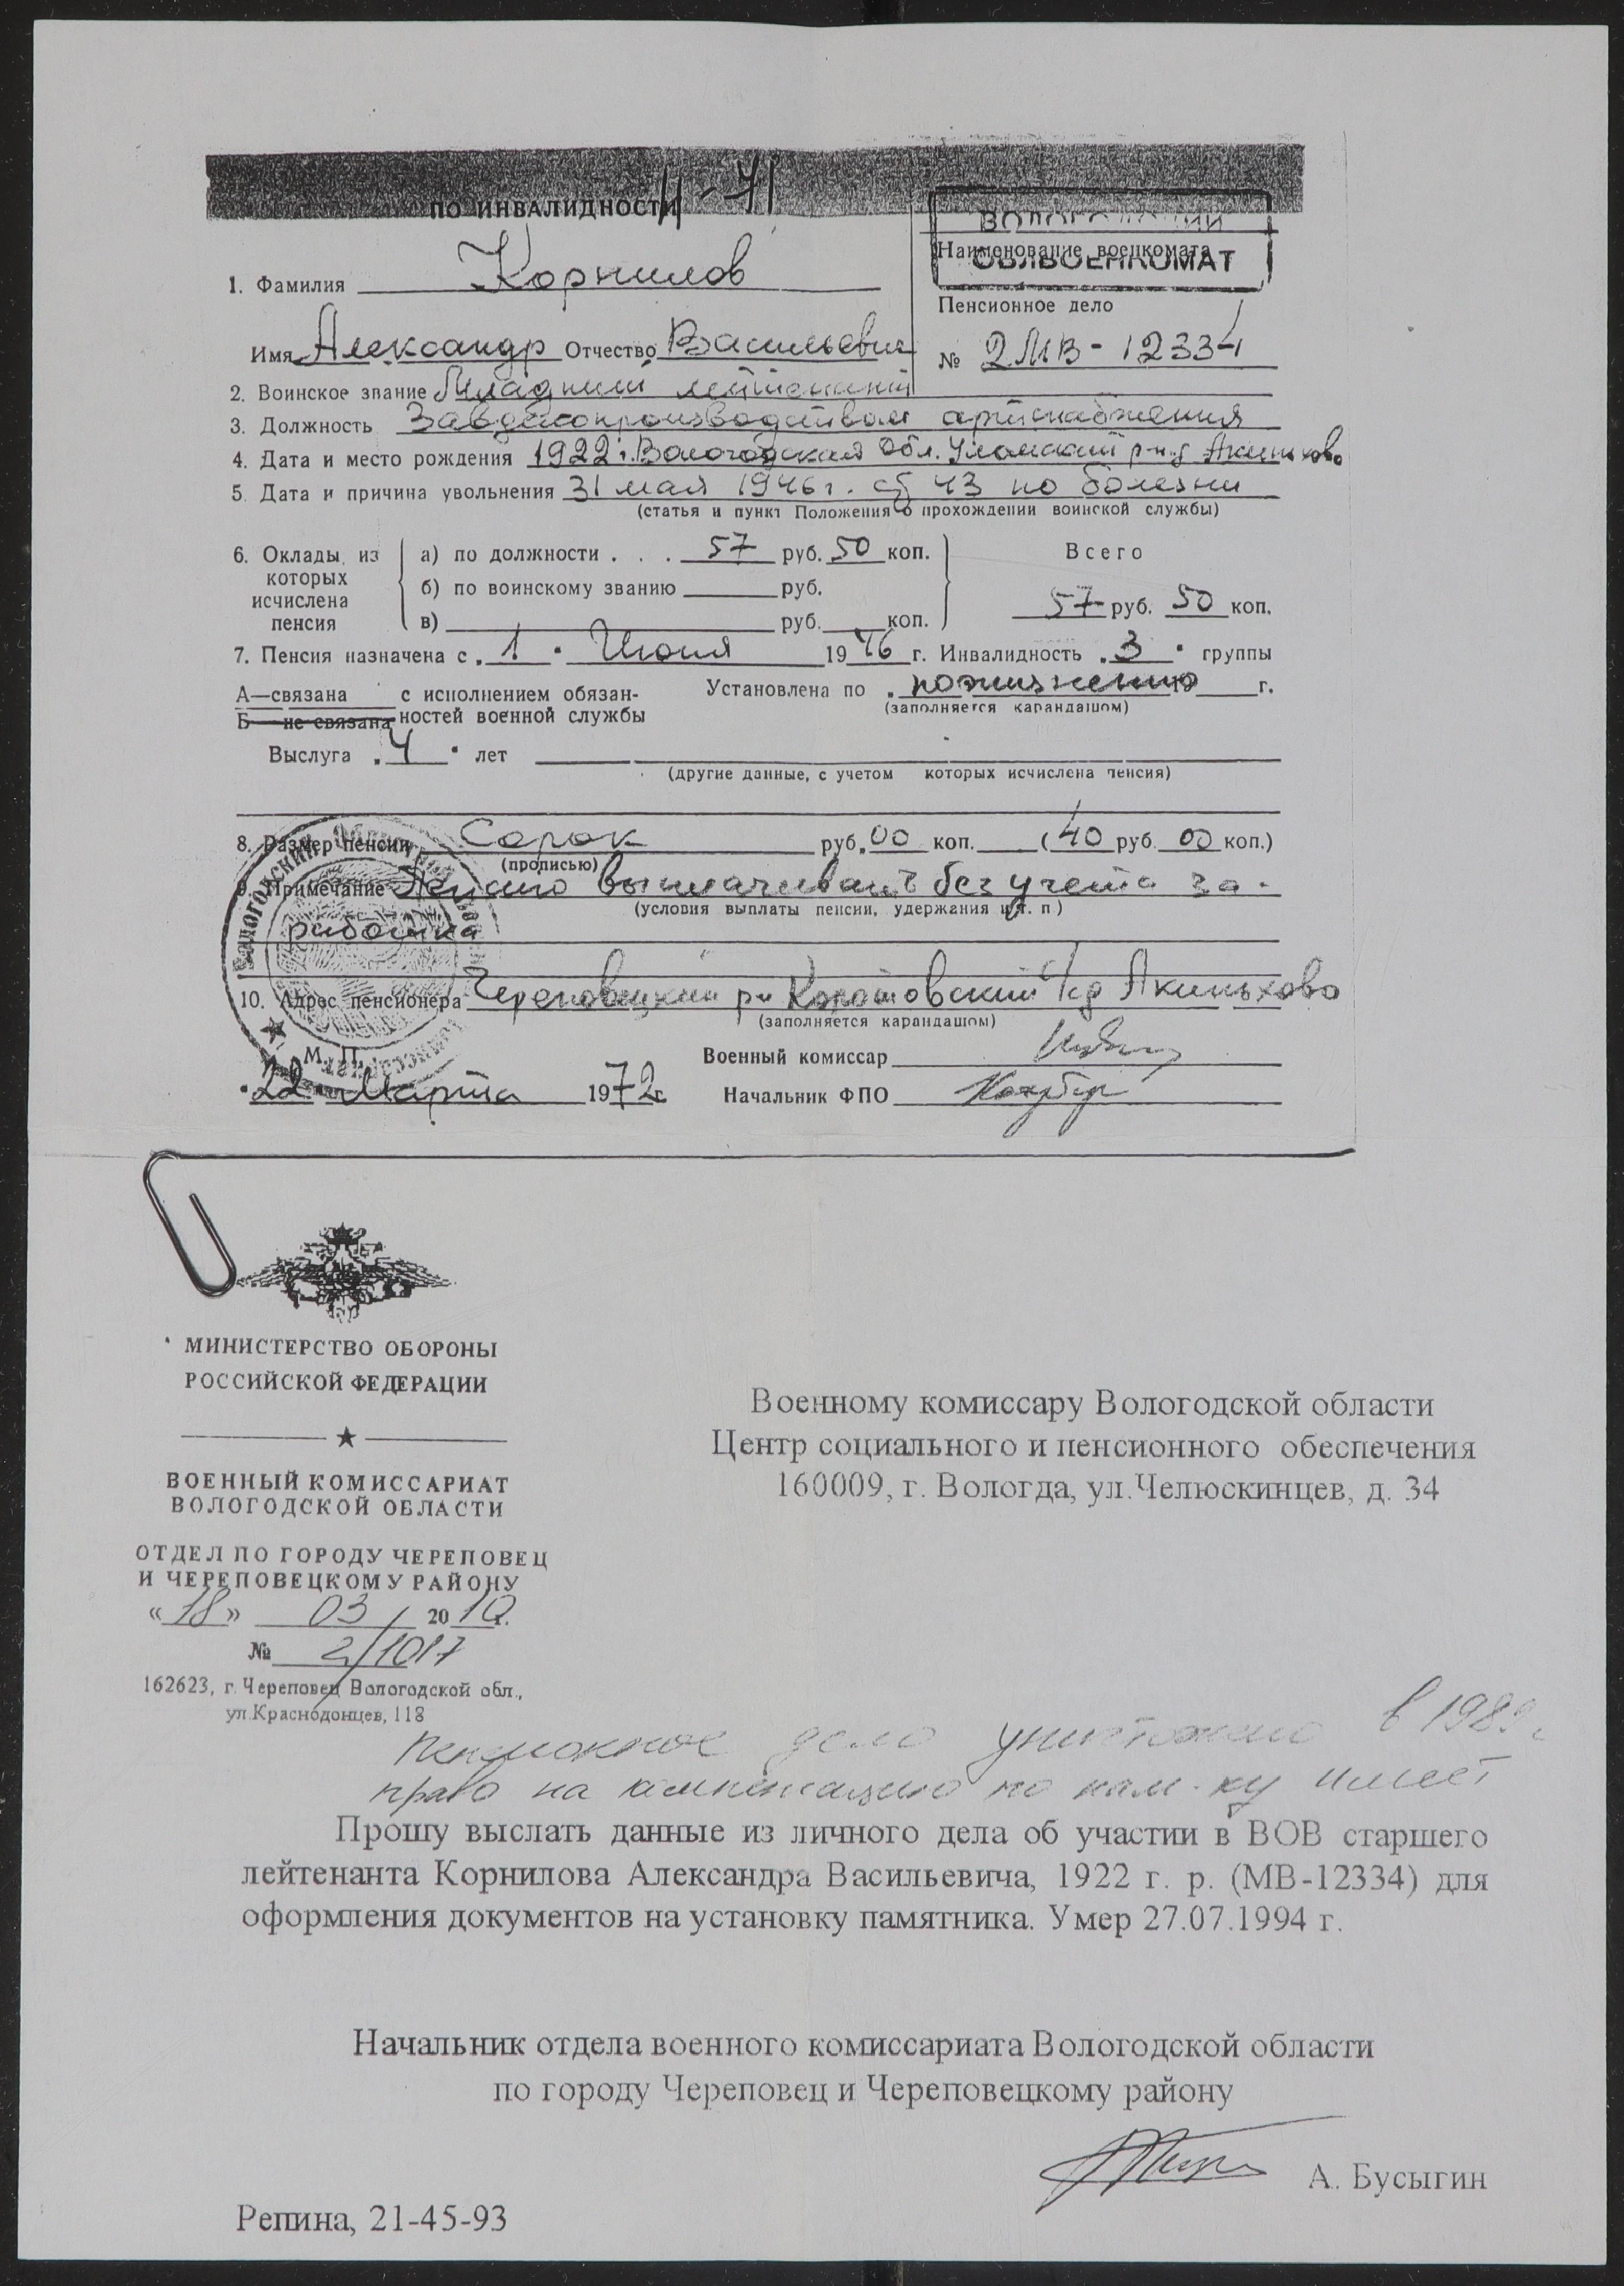 ПО ИНВАЛИДНОСТИ
ОБЛВОЕНКОМАТ
Наименование военкомата
1. Фамилия Корнилов
Пенсионное дело
Имя Александр Отчество Васильевич
№ 2МВ-12334
2. Воинское звание Младший лейтенант
3. Должность Завделопроизводством артснабжения
4. Дата и место рождения 1922 г. Вологодская обл. Уломский р-н д Акиньхово
5. Дата и причина увольнения 31 мая 1946 г. ст 43 по болезни
(статья и пункт Положения о прохождении воинской службы)
6. Оклады, из которых исчислена пенсия
а) по должности . . . 57 руб. 50 коп.
б) по воинскому званию руб.
в) руб. коп.
Всего
57 руб. 50 коп.
7. Пенсия назначена с „ 1 " Июня 1946 г. Инвалидность „ 3 " группы
А—связана с исполнением обязан-
Б—не связана ностей военной службы
Установлена по „ пожизненно г.
(заполняется карандашом)
Выслуга „ 4 " лет
(другие данные, с учетом которых исчислена пенсия)
8. Размер пенсии Сорок руб. 00 коп. (40 руб. 00 коп.)
(прописью)
9. Примечание Пенсию выплачивать без учета за-
(условия выплаты пенсии, удержания и т. п)
работка
10. Адрес пенсионера Череповецкий рн Коротовский с/с д Акиньхово
(заполняется карандашом)
М. П.
Военный комиссар
„22" Марта 1972 г.
Начальник ФПО
МИНИСТЕРСТВО ОБОРОНЫ
РОССИЙСКОЙ ФЕДЕРАЦИИ
ВОЕННЫЙ КОМИССАРИАТ
ВОЛОГОДСКОЙ ОБЛАСТИ
ОТДЕЛ ПО ГОРОДУ ЧЕРЕПОВЕЦ
И ЧЕРЕПОВЕЦКОМУ РАЙОНУ
«18» 03 2010.
№ 2/1017
162623, г. Череповец Вологодской обл.,
ул.Краснодонцев, 118
Военному комиссару Вологодской области
Центр социального и пенсионного обеспечения
160009, г. Вологда, ул.Челюскинцев, д. 34
Пенсионное дело уничтожено в 1989 г
право на компенсацию по пам-ку имеет
Прошу выслать данные из личного дела об участии в ВОВ старшего
лейтенанта Корнилова Александра Васильевича, 1922 г. р. (МВ-12334) для
оформления документов на установку памятника. Умер 27.07.1994 г.
Начальник отдела военного комиссариата Вологодской области
по городу Череповец и Череповецкому району
А. Бусыгин
Репина, 21-45-93